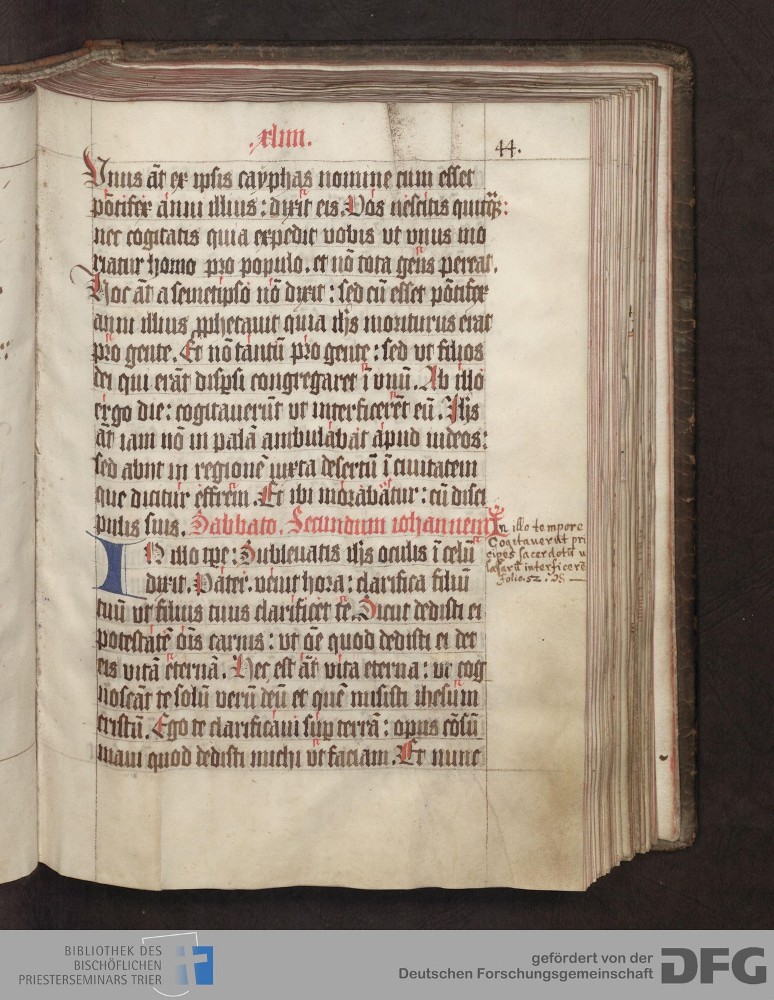 .xliiii.
44.
Vnus aūt ex ipsis cayphas nomine cum esset
pōtifex anni illius: dixit eis. Vos nescitis quitqȝ:
nec cogitatis quia expedit vobis vt vnus mo
riatur homo pro populo. et nō tota gens pereat.
Hoc aūt a semetipso nō dixit: sed cū esset pōtifex
anni illius ꝓphetauit quia ihs moriturus erat
pro gente. Et nō tantū pro gente: sed vt filios
dei qui erāt dispsi congregaret ī vnū. Ab illo
ergo die: cogitauerūt vt interficerēt eū. Ihs
aūt iam nō in palā ambulabat apud iudeos:
sed abijt in regionē iuxta desertū ī ciuitatem
que dicitur effrem. Et ibi morabātur: cū disci
pulis suis. Sabbato. Secundum iohannem
IN illo tpe: Subleuatis ihs oculis ī celū
dixit. Pater. venit hora: clarifica filiū
tuū vt filius tuus clarificet te. Sicut dedisti ei
potestatē ōis carnis: vt oē quod dedisti ei det
eis vitā eternā. Hec est aūt vita eterna: vt cog
noscāt te solū verū deū et quē misisti ihesum
cristū. Ego te clarificaui sup terrā: opus cōsū
maui quod dedisti michi vt faciam. Et nunc
In illo tempore
Cogitauerūt pri
cipes sacerdotū
interficere
folio. 52.
BIBLIOTHEK DES
BISCHÖFLICHEN
PRIESTERSEMINARS TRIER
gefördert von der
Deutschen Forschungsgemeinschaft
DFG